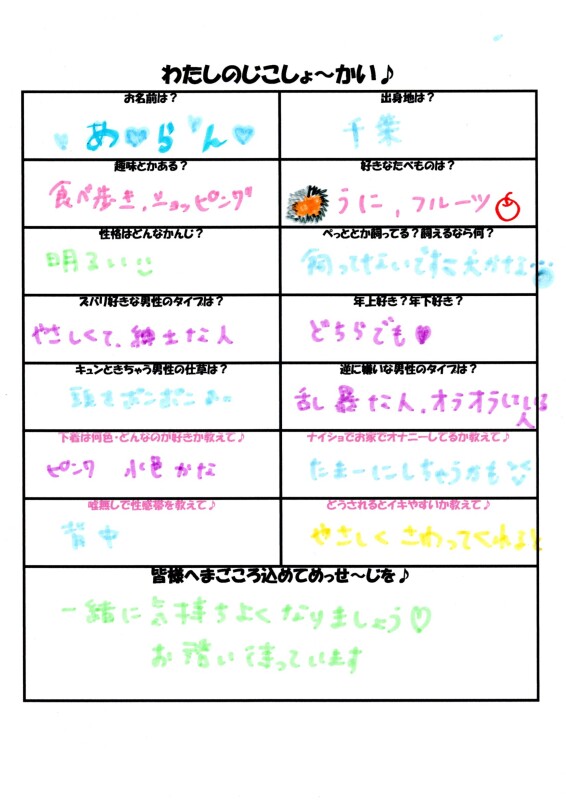 わたしのじこしょ～かい♪
お名前は？
出身地は？
め♥らん♥
千葉
趣味とかある？
好きなたべものは？
食べ歩き、ショッピング
うに、フルーツ
性格はどんなかんじ？
ぺっととか飼ってる？飼えるなら何？
明るい
飼ってないです犬かな
ズバリ好きな男性のタイプは？
年上好き？年下好き？
やさしくて、紳士な人
どちらでも♥
キュンときちゃう男性の仕草は？
逆に嫌いな男性のタイプは？
頭をポンポン
乱暴な人、オラオラしている人
下着は何色・どんなのが好きか教えて♪
ナイショでお家でオナニーしてるか教えて♪
ピンク 水色かな
たまーにしちゃうかも
嘘無しで性感帯を教えて♪
どうされるとイキやすいか教えて♪
背中
やさしくさわってくれると
皆様へまごころ込めてめっせ～じを♪
一緒に気持ちよくなりましょう♡
お誘い待っています